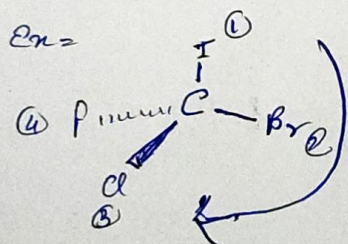 Ex =
I ①
④ F C Br ②
Cl
③